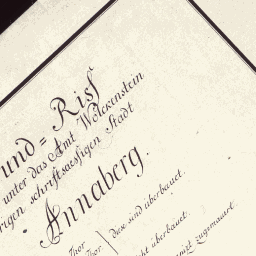 und= Riss
unter das Amt Wolckenstein
rigen schriftsaessigen Stadt
Annaberg.
Thor
Thor
diese sind überbauet.
cht überbauet.
zugemauert.